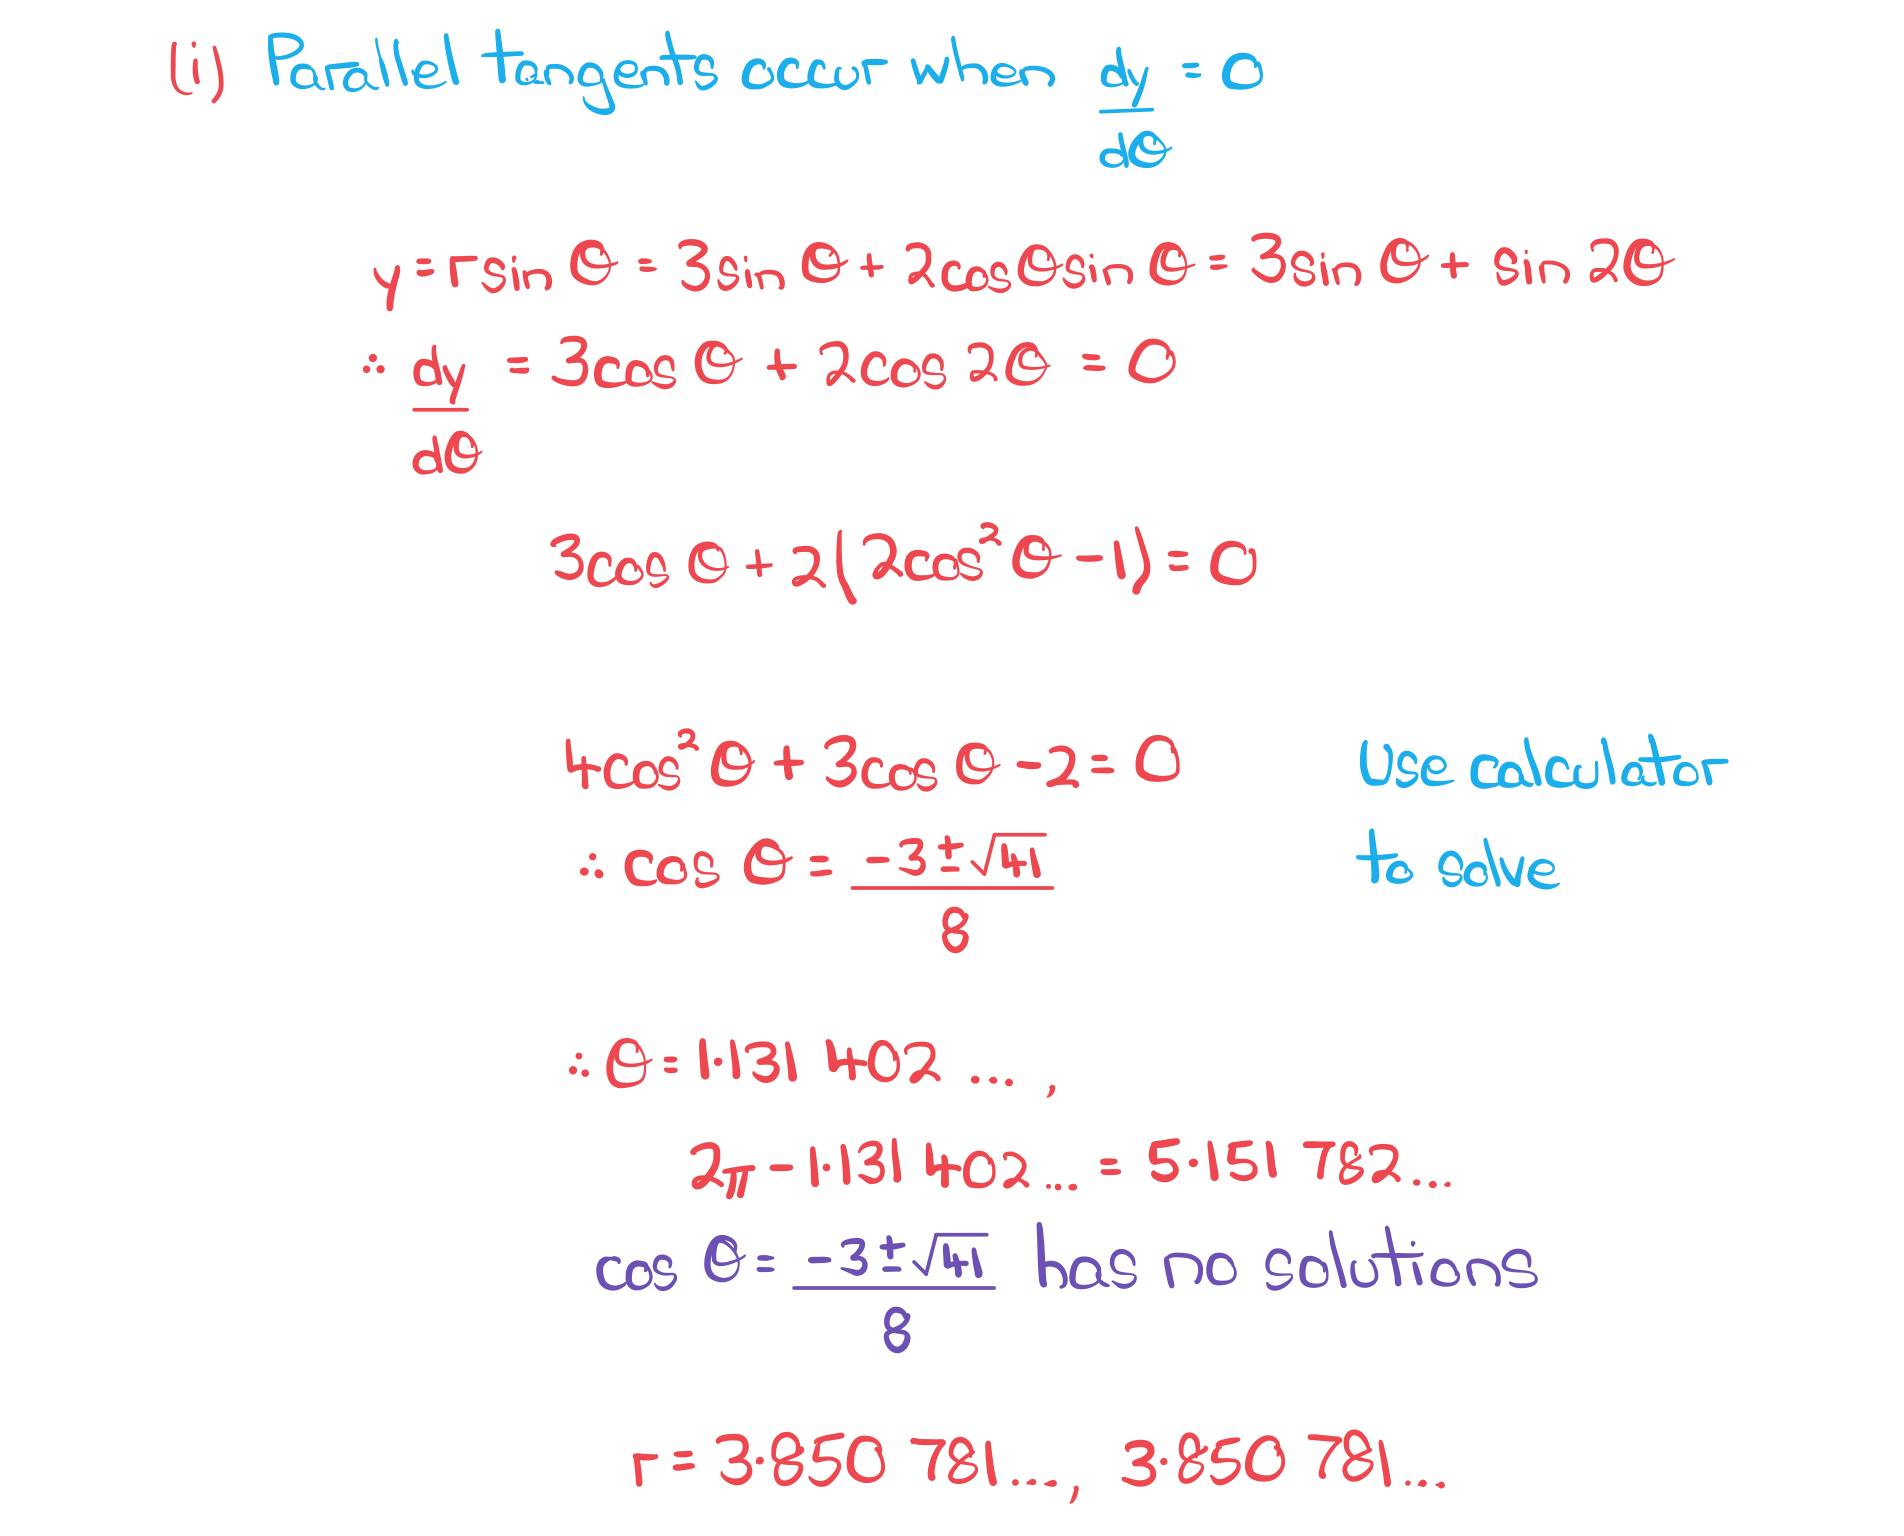 (i) Parallel tangents occur when dy/dθ = 0
y = r sin θ = 3 sin θ + 2cosθ sin θ = 3 sin θ + sin 2θ
∴ dy/dθ = 3cos θ + 2cos 2θ = 0
3cos θ + 2(2cos² θ - 1) = 0
4cos² θ + 3cos θ - 2 = 0 Use calculator
∴ cos θ = (-3 ± √41)/8 to solve
∴ θ = 1·131 402 ... ,
2π - 1·131 402 ... = 5·151 782 ...
cos θ = (-3 ± √41)/8 has no solutions
r = 3·850 781 ... , 3·850 781 ...